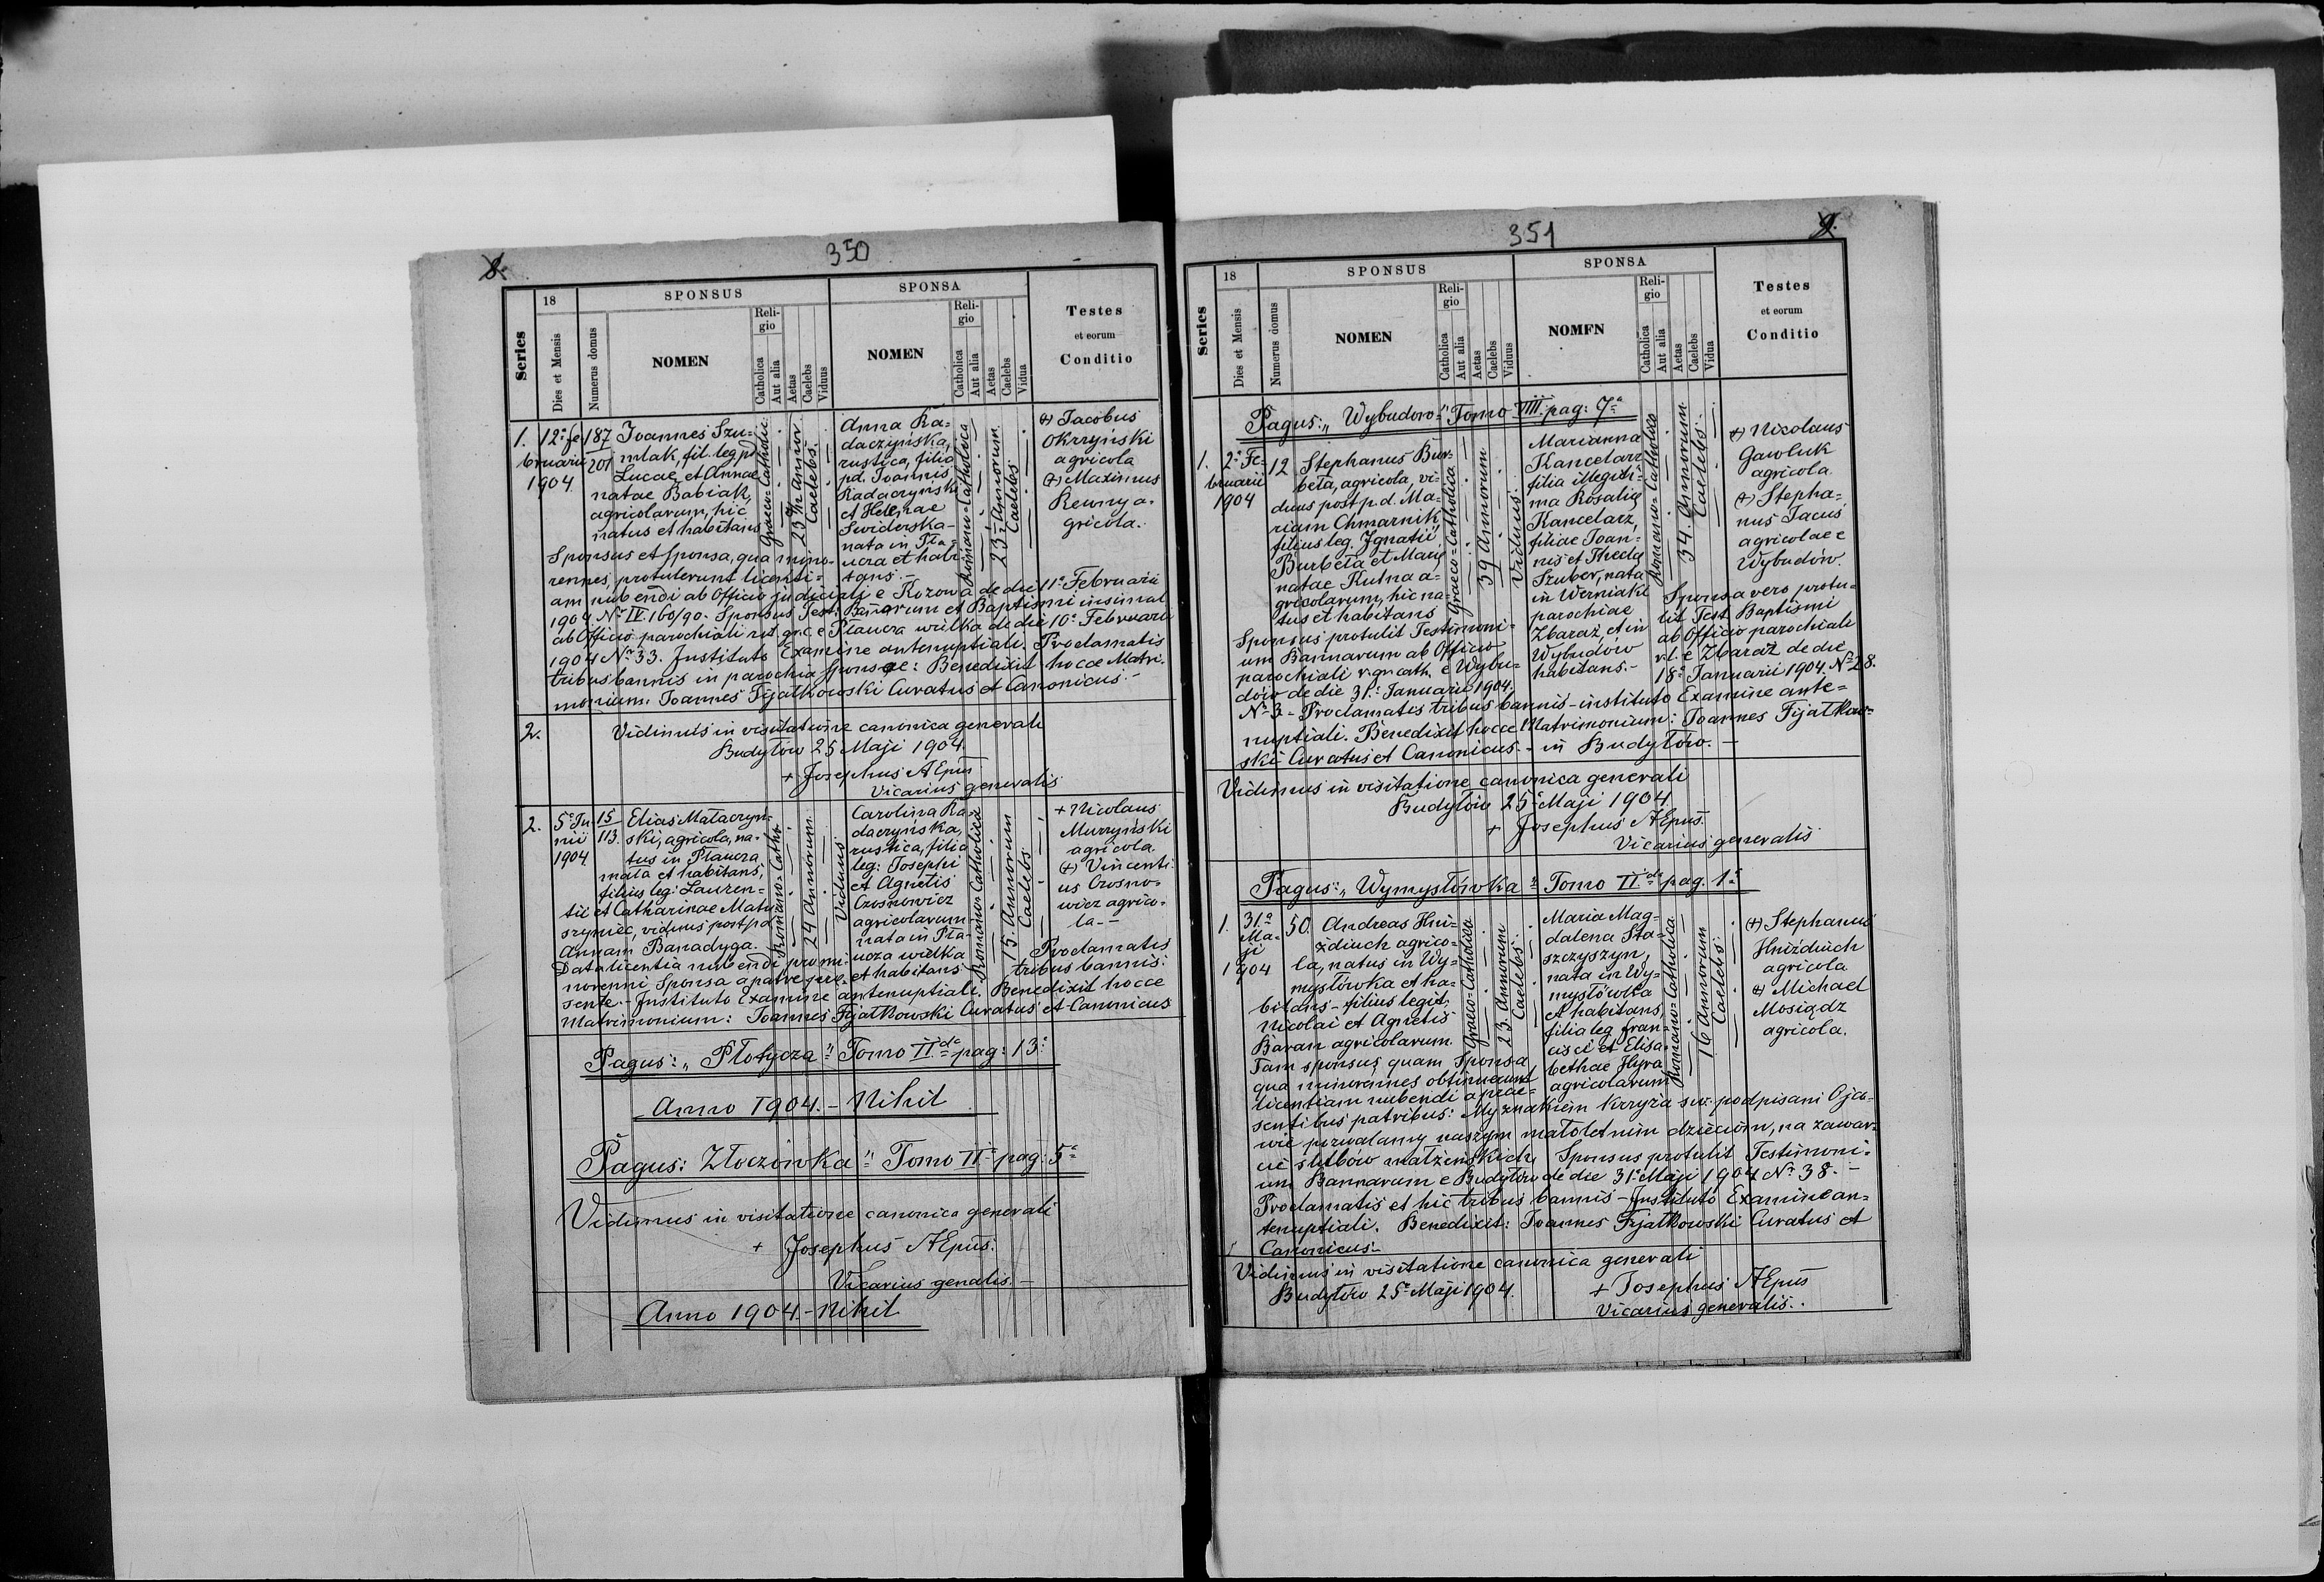 350
8.
Series
18
Dies et Mensis
Numerus domus
SPONSUS
NOMEN
Religio
Catholica
Aut alia
Aetas
Caelebs
Viduus
SPONSA
NOMEN
Religio
Catholica
Aut alia
Aetas
Caelebs
Vidua
Testes
et eorum
Conditio
1.
12ª fe-
bruarii
1904
187
201
Joannes Szu-
mlak, fil. leg pd
Lucae et Annae
natae Babiak,
agricolarum, hic
natus et habitans
Graeco-Catholic.
Caelebs.
Anna Ra-
daczyńska,
rustica, filia
pd. Joannis
Radaczyński
et Helenae
Swiderska-
nata in Pła-
ucza et habi-
tans.-
Romano-Catholica
23 Annorum
Caelebs.
(+) Jacobus
Okrzyński
agricola
(+) Maximus
Rewny a-
gricola.
Sponsus et sponsa, qua mino-
rennes, protulerunt licenti-
am nubendi ab Officio judiciali e Kozowa de die 11ª Februarii
1904 Nr IV 160/90. Sponsus Test. Bannorum et Baptismi insimul
ab Officio parochiali rit. gr. c e Płaucza wielka de die 10ª Februarii
1904 Nr 33. Instituto Examine antenuptiali. Proclamatis
tribus bannis in parochia sponsae: Benedixit hocce Matri-
monium: Joannes Fijałkowski Curatus et Canonicus.-
2.
Vidimus in visitatione canonica generali
Budyłów 25 Maji 1904.
+ Josephus AEpus
Vicarius generalis
2.
5ª Ju-
nii
1904
15
113.
Elias Mataczyń-
ski, agricola, na-
tus in Płaucza
mała et habitans,
filius leg. Lauren-
tii et Catharinae Matu
szyniec, viduus post pd
Annam Banadyga.
Romano-Cath.
24 Annorum.
Viduus
Carolina Ra
daczyńska,
rustica, filia
leg: Josephi
et Agnetis
Czosnowicz
agricolarum
nata in Pła-
ucza wielka
et habitans
Romano-Catholica
15. Annorum
Caelebs.
+ Nicolaus
Murzyński
agricola.
(+) Vincenti
us Czosno-
wicz agrico-
la.-
Data licentia nubendi pro mi-
norenni sponsa a patre prae-
sente.- Instituto Examine antenuptiali. Benedixit hocce
Proclamatis
tribus bannis:
Matrimonium: Joannes Fijałkowski Curatus et Canonicus
Pagus: „Płotycza" Tomo II.do pag: 13.
Anno 1904.- Nihil
Pagus: Złoczówka" Tomo II. pag: 5ª
Vidimus in visitatione canonica generali
+ Josephus AEpus.
Vicarius genalis.-
Anno 1904.- Nihil
351
9.
Series
18
Dies et Mensis
Numerus domus
SPONSUS
NOMEN
Religio
Catholica
Aut alia
Aetas
Caelebs
Viduus
SPONSA
NOMEN
Religio
Catholica
Aut alia
Aetas
Caelebs
Vidua
Testes
et eorum
Conditio
Pagus: „Wybudow" Tomo VIII pag: 7ª
1.
2ª Fe-
bruarii
1904
12
Stephanus Bur-
beta, agricola, vi-
duus post p.d. Ma-
riam Chmarnik,
filius leg. Ignatii
Burbeta et Marię
natae Kutna a-
gricolarum, hic na-
tus et habitans
Graeco-Catholica
39 Annorum
Viduus.
Marianna
Kancelarz
filia illegiti-
ma Rosalię
Kancelarz,
filiae Joan-
nis et Theclę
Szuber, nata
in Werniaki
parochiae
Zbaraż, et in
Wybudów
habitans.-
Romano-Catholica
34. Annorum
Caelebs.
(+) Nicolaus
Gawluk
agricola.
(+) Stepha-
nus Jacuś
agricolae e
Wybudów.
Sponsus protulit Testimoni-
um Bannarum ab Officio
parochiali r. gr. cath. e Wybu-
dów de die 31. Januarii 1904.
Nr 3.-
Sponsa vero protu-
lit Test. Baptismi
ab Officio parochiali
r.l. e Zbaraż de die
18ª Januarii 1904. Nr 28.
Proclamatis tribus bannis - instituto Examine ante-
nuptiali. Benedixit hocce Matrimonium: Joannes Fijałkow-
ski Curatus et Canonicus.- in Budyłów.-
Vidimus in visitatione canonica generali
Budyłów 25 Maji 1904.
+ Josephus AEpus.
Vicarius generalis
Pagus: „Wymysłówka" Tomo II.do pag. 1ª
1.
31ª
Ma-
ji
1904
50.
Andreas Hni-
ździuch agrico-
la, natus in Wy-
mysłówka et ha-
bitans - filius legit.
Nicolai et Agnetis
Baran agricolarum.
Graeco-Catholica
23. Annorum
Caelebs.
Maria Mag-
dalena Sta-
szczyszyn,
nata in Wy-
mysłówka
et habitans,
filia leg. fran-
cisci et Elisa-
bethae Hyra
agricolarum
Romano-Catholica
16 Annorum
Caelebs.
(+) Stephanus
Hniździuch
agricola
(+) Michael
Mosiądz
agricola.
Tam sponsus, quam sponsa
qua minorennes obtinuerunt
licentiam nubendi a prae-
sentibus patribus: My znakiem krzyża św. podpisani Ojco-
wie pozwalamy naszym małoletnim dzieciom, na zawar-
cie ślubów małżeńskich. Sponsus protulit Testimoni-
um Bannarum e Budyłów de die 31ª Maji 1904 Nr 38.-
Proclamatis et hic tribus bannis - Instituto Examine an-
tenuptiali. Benedixit: Joannes Fijałkowski Curatus et
Canonicus.-
Vidimus in visitatione canonica generali
Budyłów 25ª Maji 1904.
+ Josephus AEpus
Vicarius generalis.